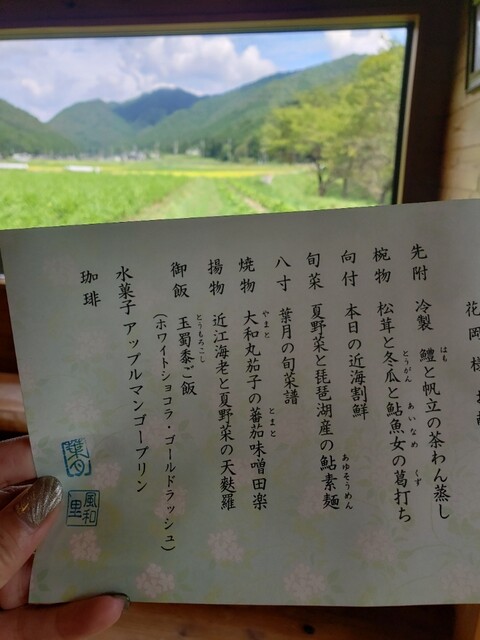 花岡様
先附 冷製 鱧と帆立の茶わん蒸し
はも
椀物 松茸と冬瓜と鮎魚女の葛打ち
とうがん あいなめ くず
向付 本日の近海割鮮
旬菜 夏野菜と琵琶湖産の鮎素麺
あゆそうめん
八寸 葉月の旬菜譜
焼物 大和丸茄子の蕃茄味噌田楽
やまと とまと
揚物 近江海老と夏野菜の天麩羅
御飯 玉蜀黍ご飯
とうもろこし
(ホワイトショコラ・ゴールドラッシュ)
水菓子 アップルマンゴープリン
珈琲
葉月
風和里